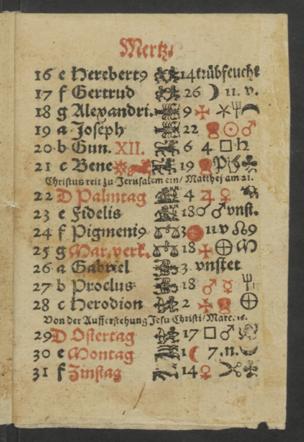 Mertz.
16 e Herebert9 14 trübfeucht
17 f Gertrud 26 ☽ 11. v.
18 g Alexandri. 9 ✠ ⚹ ☽
19 a Joseph 22 ☉ ♂
20 b Gun. XII. 6 4 □ ♄
21 c Bene 19
Christus reit zu Jerusalem ein / Matthej am 21.
22 D Palmtag 4 ♃ ♀
23 e Fidelis 18 ♂ vnst.
24 f Pigmeni9 3 11 v ☊ 9
25 g Mar. verk. 18 ✠ ⊕
26 a Gabriel 3. vnstet
27 b Proclus 18 ♂ ☿
28 c Herodion 2 ✠ ⊕
Von der Aufferstehung Jesu Christi / Marc. 16.
29 D Ostertag 17 □ ♂
30 e Montag 1 ☾ 7. n.
31 f Zinstag 14 ♀